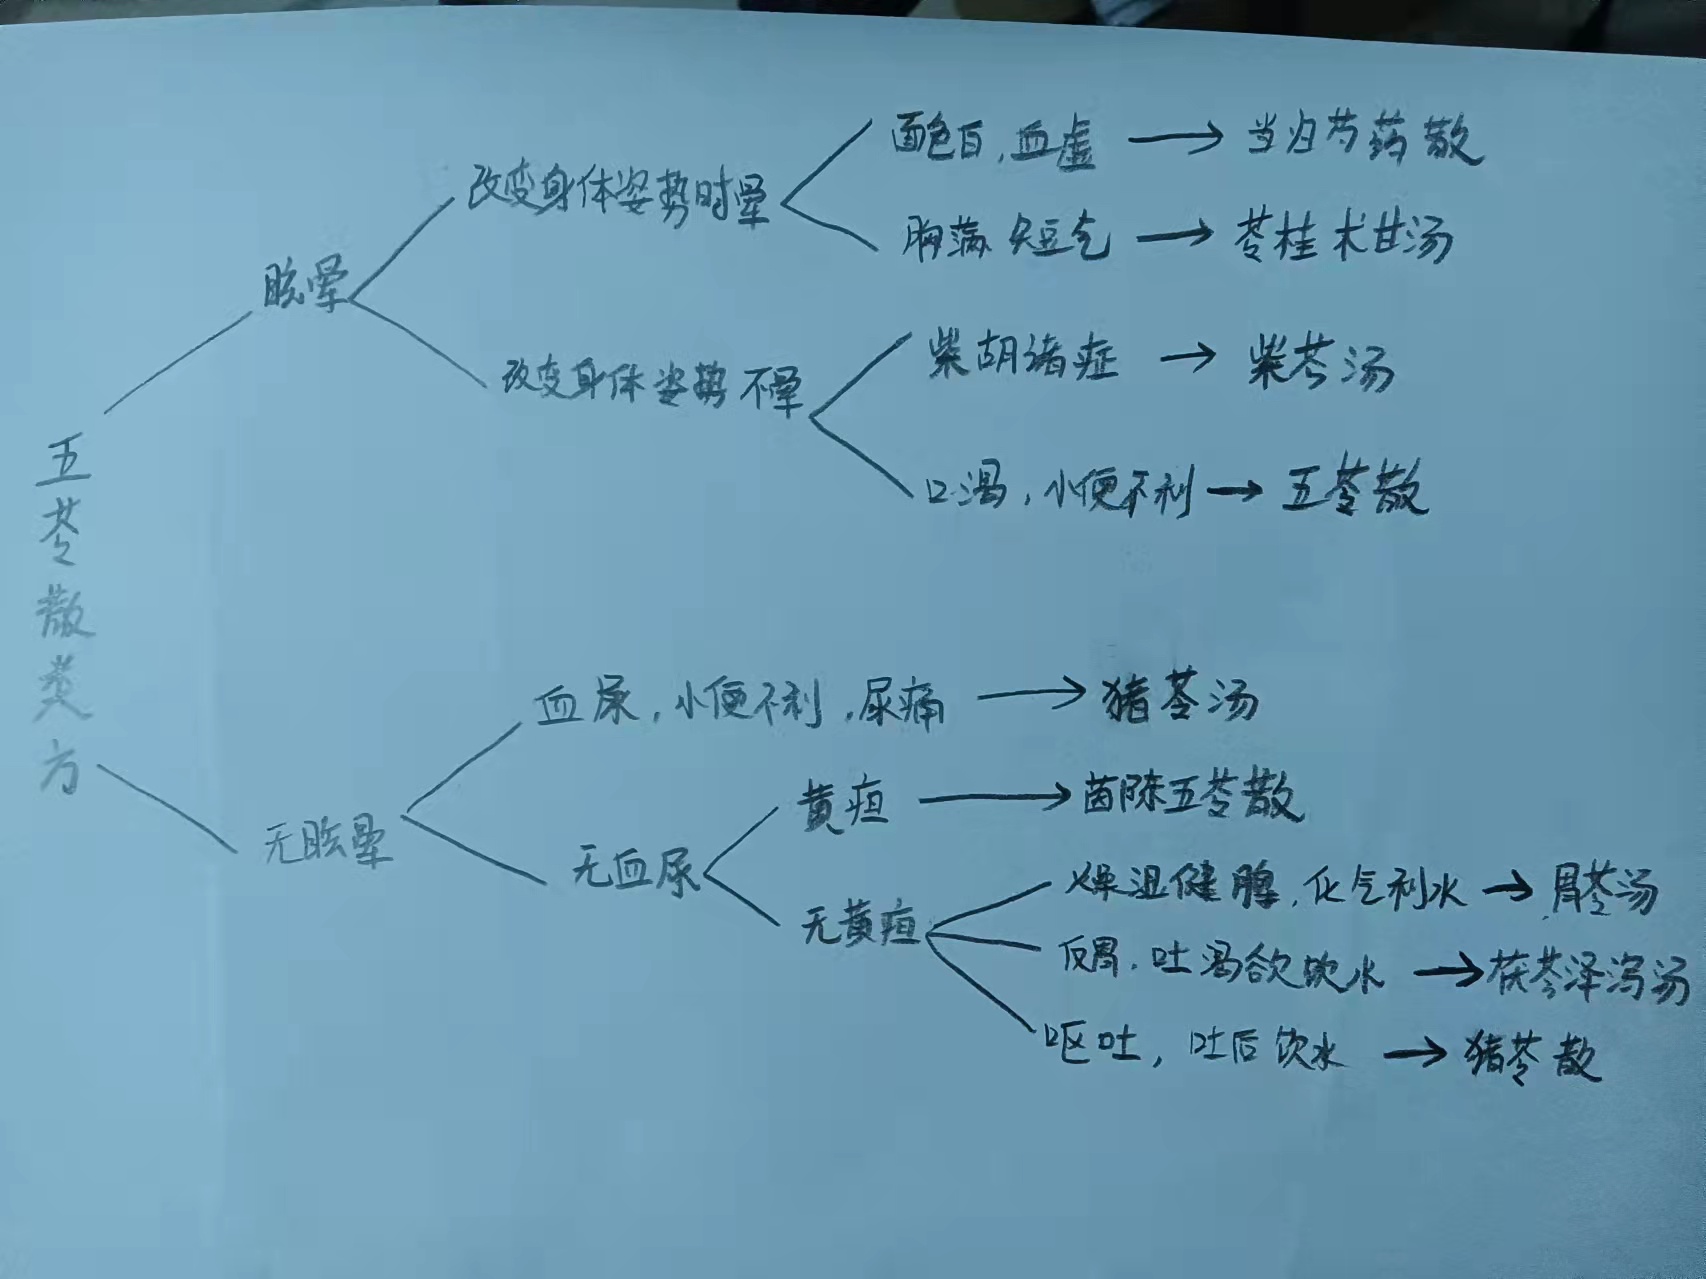 五苓散类方
眩晕
改变身体姿势时晕
面色白,血虚 → 当归芍药散
胸满 短气 → 苓桂术甘汤
改变身体姿势不晕
柴胡诸症 → 柴苓汤
口渴,小便不利 → 五苓散
无眩晕
血尿,小便不利,尿痛 → 猪苓汤
无血尿
黄疸 → 茵陈五苓散
无黄疸
燥湿健脾,化气利水 → 胃苓汤
反胃,吐渴欲饮水 → 茯苓泽泻汤
呕吐,吐后饮水 → 猪苓散